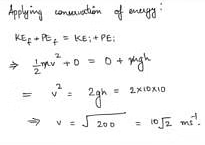 Applying conservation of energy:
KE_f + PE_f = KE_i + PE_i
⇒ 1/2 mv² + 0 = 0 + mgh
= v² = 2gh = 2×10×10
⇒ v = √200 = 10√2 ms⁻¹